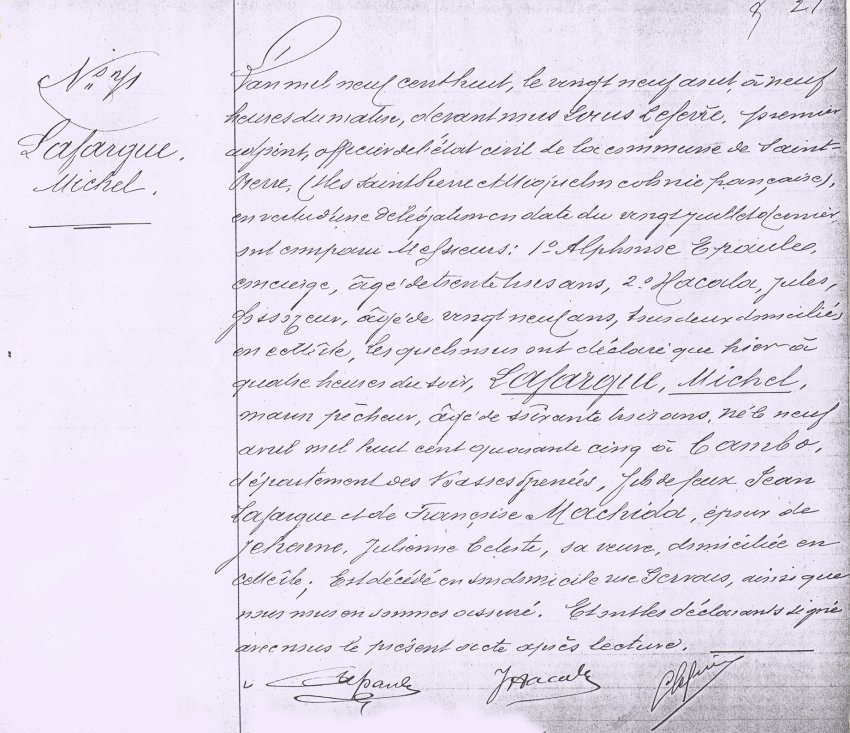 21
N° 71
Lafargue.
Michel.
L'an mil neuf cent huit, le vingt neuf août, à neuf
heures du matin, devant nous Louis Lefèvre, premier
adjoint, officier de l'état civil de la commune de Saint-
Pierre, (Iles Saint Pierre et Miquelon colonie française),
en vertu d'une délégation en date du vingt juillet dernier,
ont comparu Messieurs: 1° Alphonse Epaule,
concierge, âgé de trente trois ans, 2° Hacala, Jules,
fossoyeur, âgé de vingt neuf ans, tous deux domiciliés
en cette île, lesquels nous ont déclaré que hier à
quatre heures du soir, Lafargue, Michel,
marin pêcheur, âgé de soixante trois ans, né le neuf
avril mil huit cent quarante cinq à Cambo,
département des Basses Pyrenées, fils de feux Jean
Lafargue et de Françoise Machida, époux de
Jehenne, Julienne Celeste, sa veuve, domiciliée en
cette île; Est décédé en son domicile rue Gervais, ainsi que
nous nous en sommes assuré. Et ont les déclarants signé
avec nous le présent acte après lecture.
Epaule JHacala